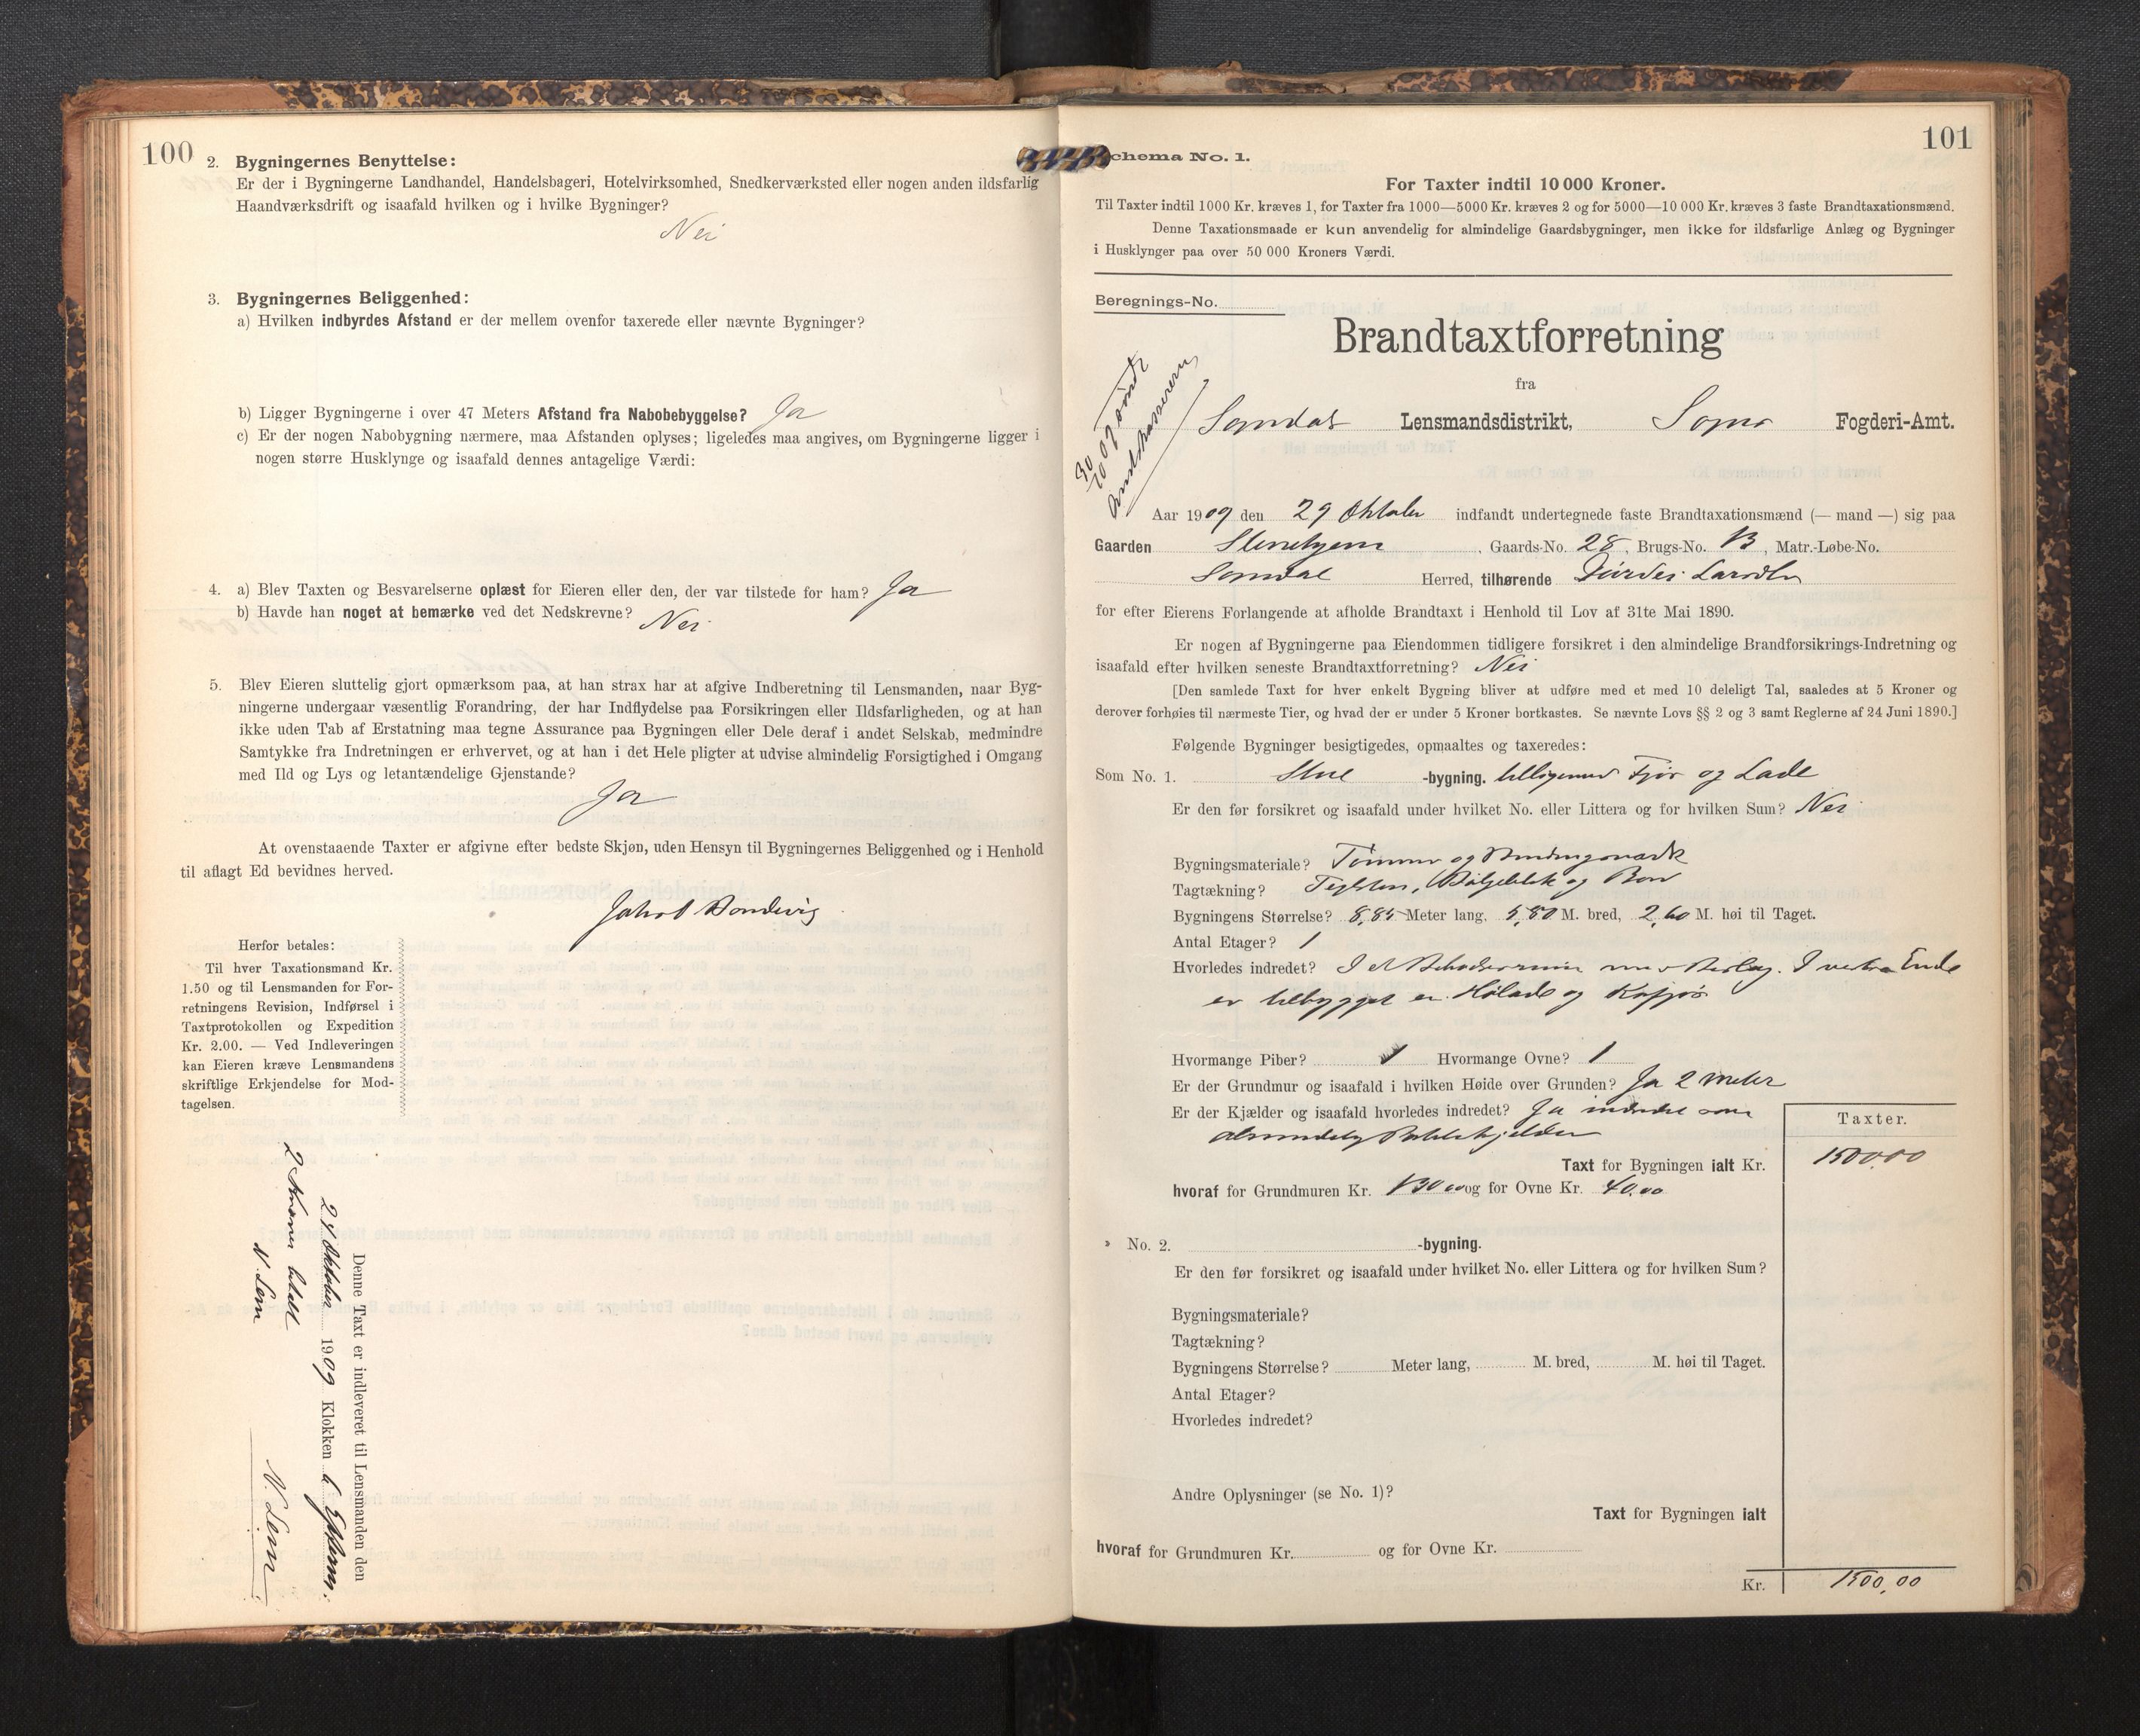 100
2. Bygningernes Benyttelse:
Er der i Bygningerne Landhandel, Handelsbageri, Hotelvirksomhed, Snedkerværksted eller nogen anden ildsfarlig
Haandværksdrift og isaafald hvilken og i hvilke Bygninger?
Nei
3. Bygningernes Beliggenhed:
a) Hvilken indbyrdes Afstand er der mellem ovenfor taxerede eller nævnte Bygninger?
b) Ligger Bygningerne i over 47 Meters Afstand fra Nabobebyggelse? Ja
c) Er der nogen Nabobygning nærmere, maa Afstanden oplyses; ligeledes maa angives, om Bygningerne ligger i
nogen større Husklynge og isaafald dennes antagelige Værdi:
4. a) Blev Taxten og Besvarelserne oplæst for Eieren eller den, der var tilstede for ham? Ja
b) Havde han noget at bemærke ved det Nedskrevne? Nei
5. Blev Eieren sluttelig gjort opmærksom paa, at han strax har at afgive Indberetning til Lensmanden, naar Byg-
ningerne undergaar væsentlig Forandring, der har Indflydelse paa Forsikringen eller Ildsfarligheden, og at han
ikke uden Tab af Erstatning maa tegne Assurance paa Bygningen eller Dele deraf i andet Selskab, medmindre
Samtykke fra Indretningen er erhvervet, og at han i det Hele pligter at udvise almindelig Forsigtighed i Omgang
med Ild og Lys og letantændelige Gjenstande?
Ja
At ovenstaaende Taxter er afgivne efter bedste Skjøn, uden Hensyn til Bygningernes Beliggenhed og i Henhold
til aflagt Ed bevidnes herved.
Jakob
Herfor betales:
Til hver Taxationsmand Kr.
1.50 og til Lensmanden for For-
retningens Revision, Indførsel i
Taxtprotokollen og Expedition
Kr. 2.00. — Ved Indleveringen
kan Eieren kræve Lensmandens
skriftlige Erkjendelse for Mod-
tagelsen.
Denne Taxt er indleveret til Lensmanden den
29 Oktober 1909 Klokken 6 Efterm.
N. Lem
2 Kroner betalt
N. Lem
101
chema No. 1.
For Taxter indtil 10 000 Kroner.
Til Taxter indtil 1000 Kr. kræves 1, for Taxter fra 1000—5000 Kr. kræves 2 og for 5000—10 000 Kr. kræves 3 faste Brandtaxationsmænd.
Denne Taxationsmaade er kun anvendelig for almindelige Gaardsbygninger, men ikke for ildsfarlige Anlæg og Bygninger
i Husklynger paa over 50 000 Kroners Værdi.
Beregnings-No.
Brandtaxtforretning
fra
Sogndal Lensmandsdistrikt, Sogns Fogderi-Amt.
Aar 1909 den 29 Oktober indfandt undertegnede faste Brandtaxationsmænd (— mand —) sig paa
Gaarden Stenehjem, Gaards-No. 28, Brugs-No. 13, Matr.-Løbe-No.
Sogndal Herred, tilhørende
for efter Eierens Forlangende at afholde Brandtaxt i Henhold til Lov af 31te Mai 1890.
Er nogen af Bygningerne paa Eiendommen tidligere forsikret i den almindelige Brandforsikrings-Indretning og
isaafald efter hvilken seneste Brandtaxtforretning? Nei
[Den samlede Taxt for hver enkelt Bygning bliver at udføre med et med 10 deleligt Tal, saaledes at 5 Kroner og
derover forhøies til nærmeste Tier, og hvad der er under 5 Kroner bortkastes. Se nævnte Lovs §§ 2 og 3 samt Reglerne af 24 Juni 1890.]
Følgende Bygninger besigtigedes, opmaaltes og taxeredes:
Som No. 1. Stue -bygning. tilligemed Fjøs og Lade
Er den før forsikret og isaafald under hvilket No. eller Littera og for hvilken Sum? Nei
Bygningsmateriale? Tømmer og Bindingsværk
Tagtækning? Teglsten, Bølgeblik og Bord
Bygningens Størrelse? 8,85 Meter lang, 5,80 M. bred, 2,60 M. høi til Taget.
Antal Etager? 1
Hvorledes indredet? I et Beboelsesrum I vestre Ende
er tilbygget en Hølade og Kofjøs
Hvormange Piber? 1 Hvormange Ovne? 1
Er der Grundmur og isaafald i hvilken Høide over Grunden? Ja 2 meter
Er der Kjælder og isaafald hvorledes indredet? Ja indredet som
almindelig Potetkjelder
Taxter.
Taxt for Bygningen ialt Kr. 1500,00
hvoraf for Grundmuren Kr. 130,00 og for Ovne Kr. 40,00
No. 2. -bygning.
Er den før forsikret og isaafald under hvilket No. eller Littera og for hvilken Sum?
Bygningsmateriale?
Tagtækning?
Bygningens Størrelse? Meter lang, M. bred, M. høi til Taget.
Antal Etager?
Hvorledes indredet?
Andre Oplysninger (se No. 1)?
Taxt for Bygningen ialt
hvoraf for Grundmuren Kr. og for Ovne Kr.
Kr. 1500,00